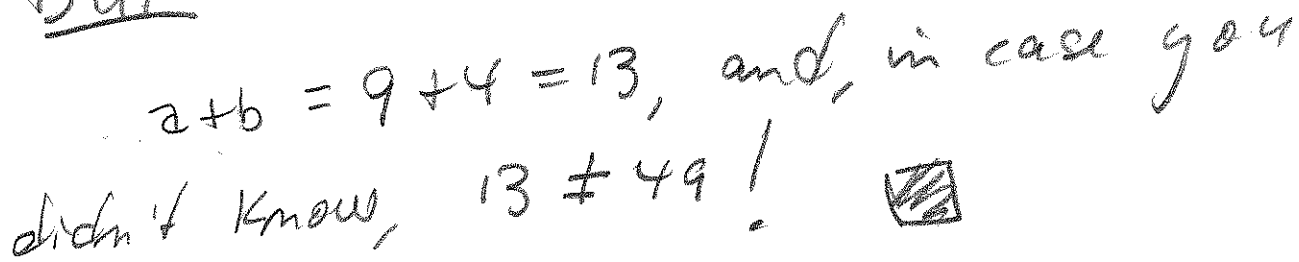 But
a+b = 9+4 = 13, and, in case you
didn't know, 13 ≠ 49!